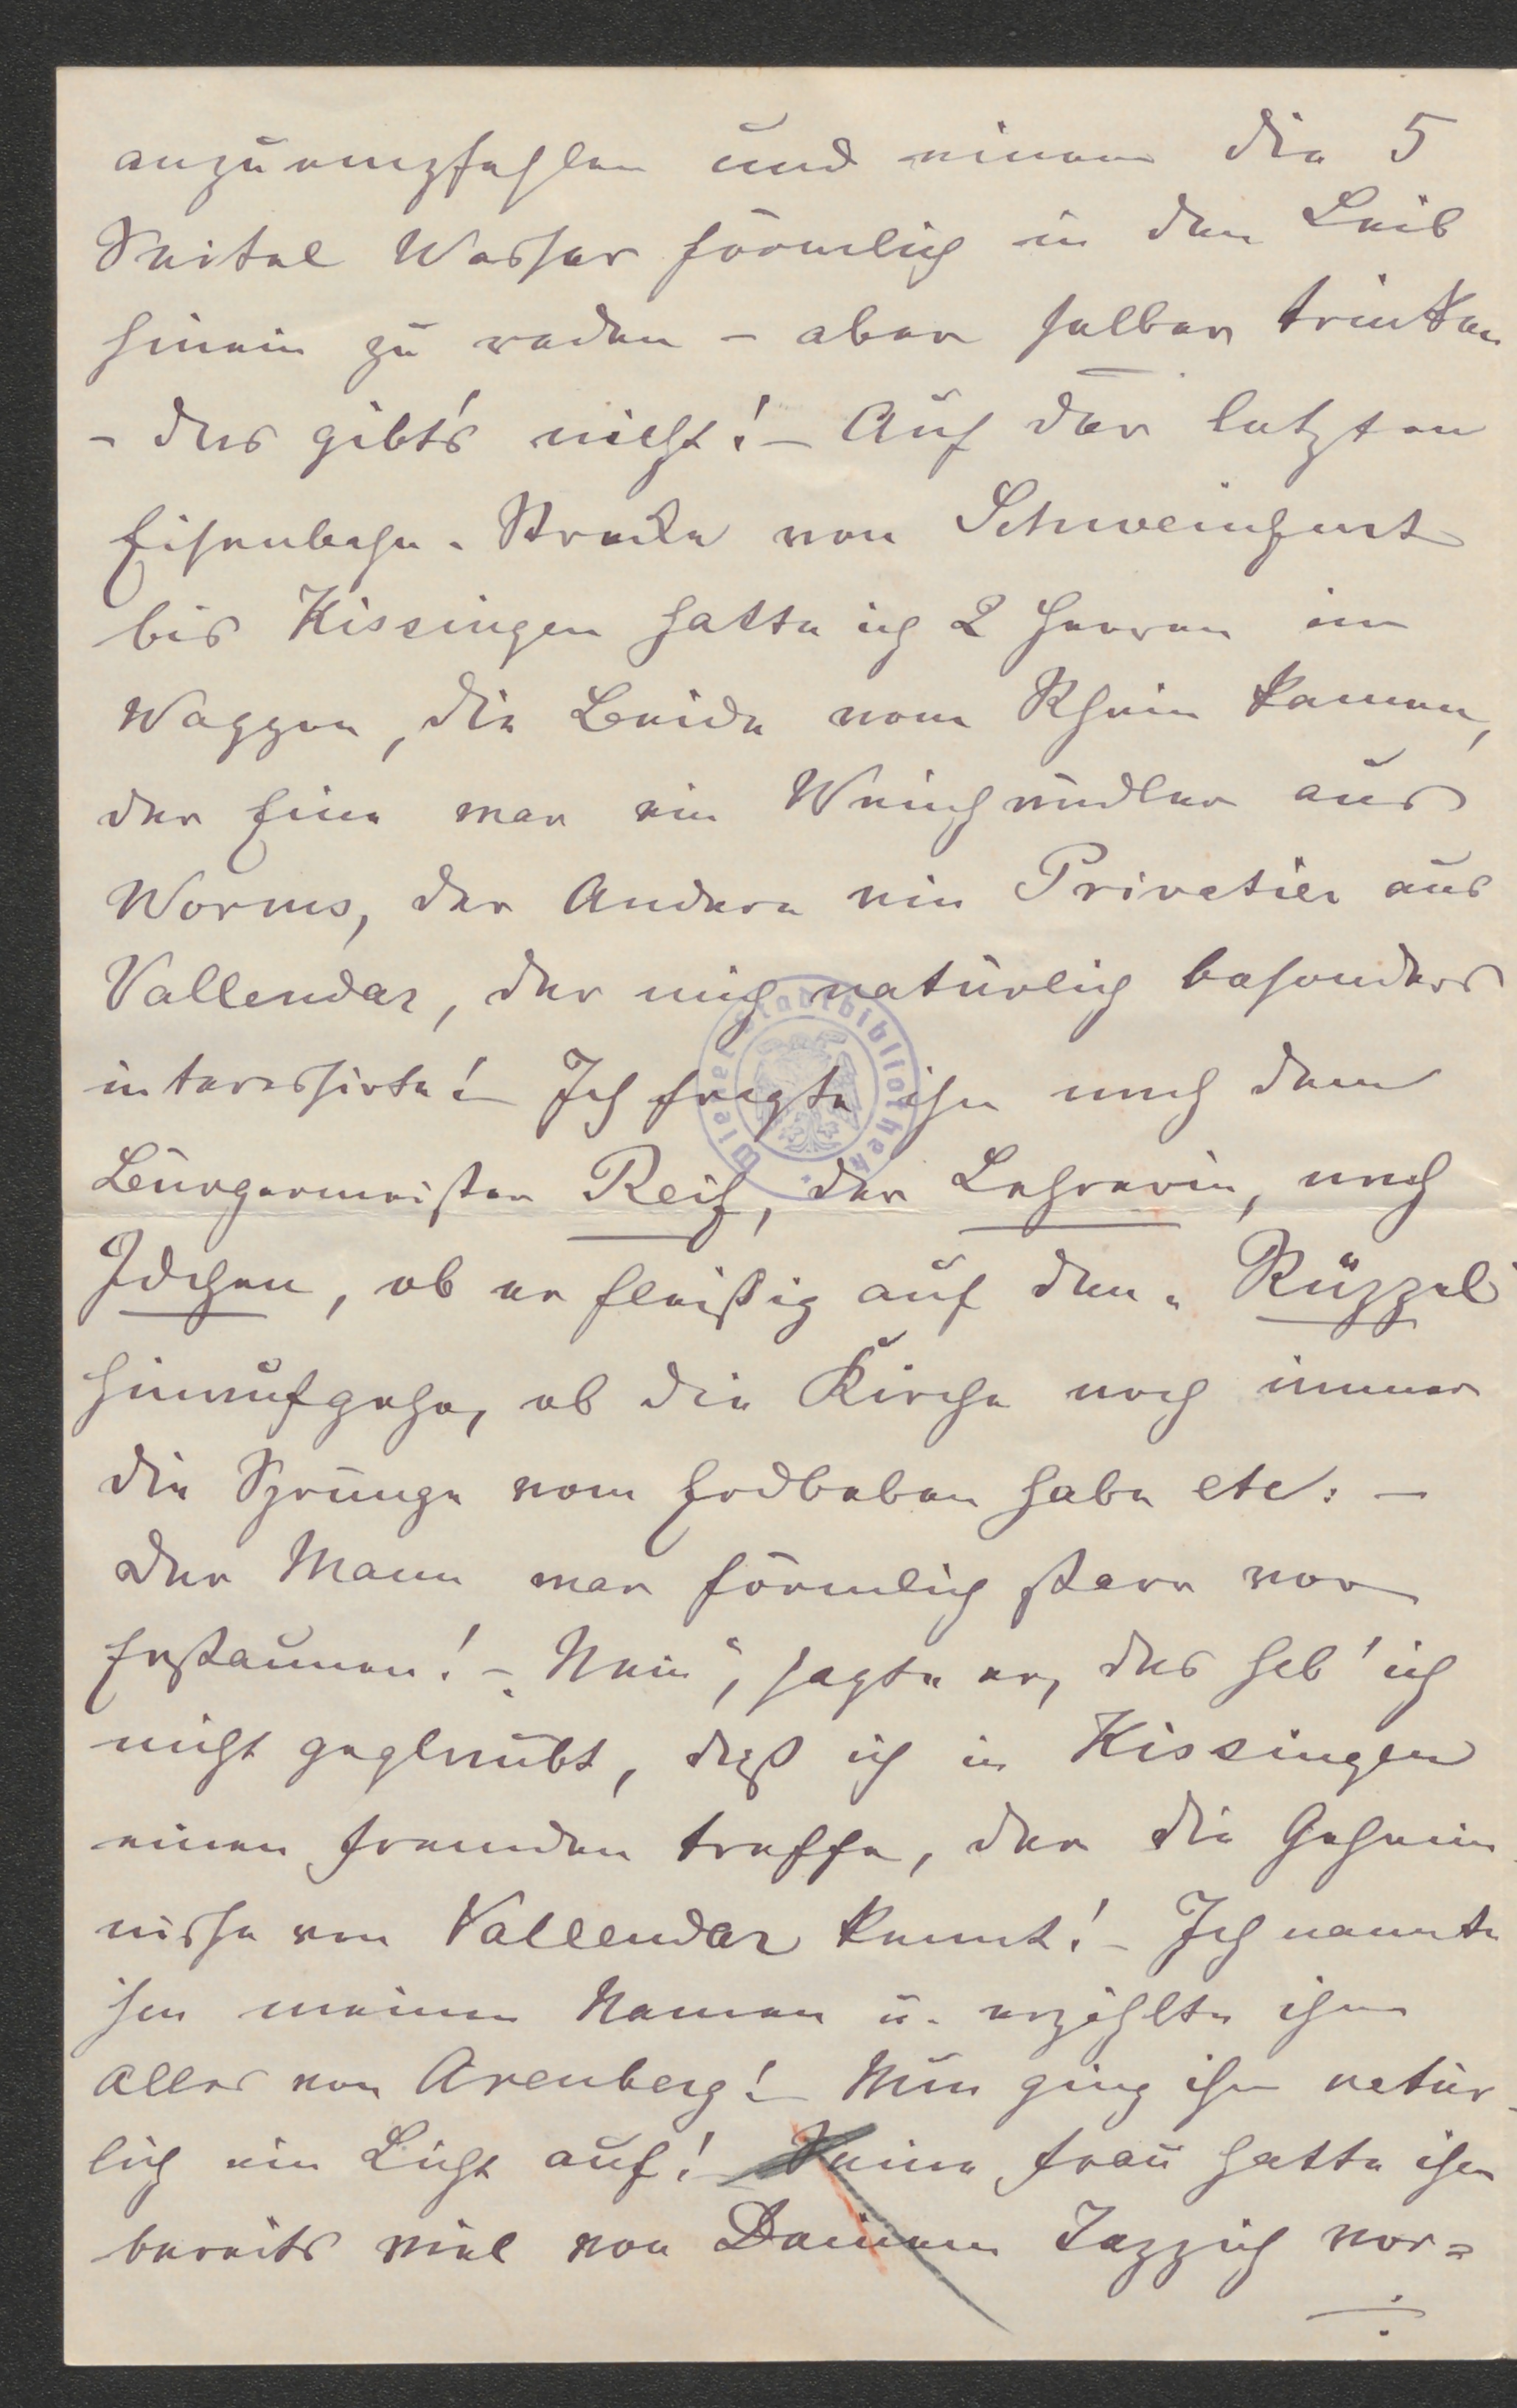 anzuempfehlen und einem die 5
Seitel Wasser förmlich in den Leib
hinein zu reden – aber selber trinken
– das gibt's nicht! – Auf der letzten
Eisenbahn-Strecke von Schweinfurt
bis Kissingen hatte ich 2 Herren im
Waggon, die Beide vom Rhein kamen,
der Eine war ein Weinhändler aus
Worms, der Andere ein Privatier aus
Vallendar, der mich natürlich besonders
interessirte! – Ich fragte ihn nach dem
Bürgermeister Reif, der Lehrerin, nach
Idchen, ob er fleißig auf den „Rüppel"
hinaufgehe, ob die Kirche noch immer
die Sprünge vom Erdbeben habe etc: –
Der Mann war förmlich starr vor
Erstaunen! – „Nein", sagte er, das hab' ich
nicht geglaubt, daß ich in Kissingen
einen Fremden treffe, der die Geheim-
nisse von Vallendar kennt! – Ich nannte
ihm meinen Namen u. erzählte ihm
alles von Arenberg! – Nun ging ihm natür-
lich ein Licht auf! – Seine Frau hatte ihm
bereits viel von Deinem Teppich vor=
Bieler Stadtbibliothek.